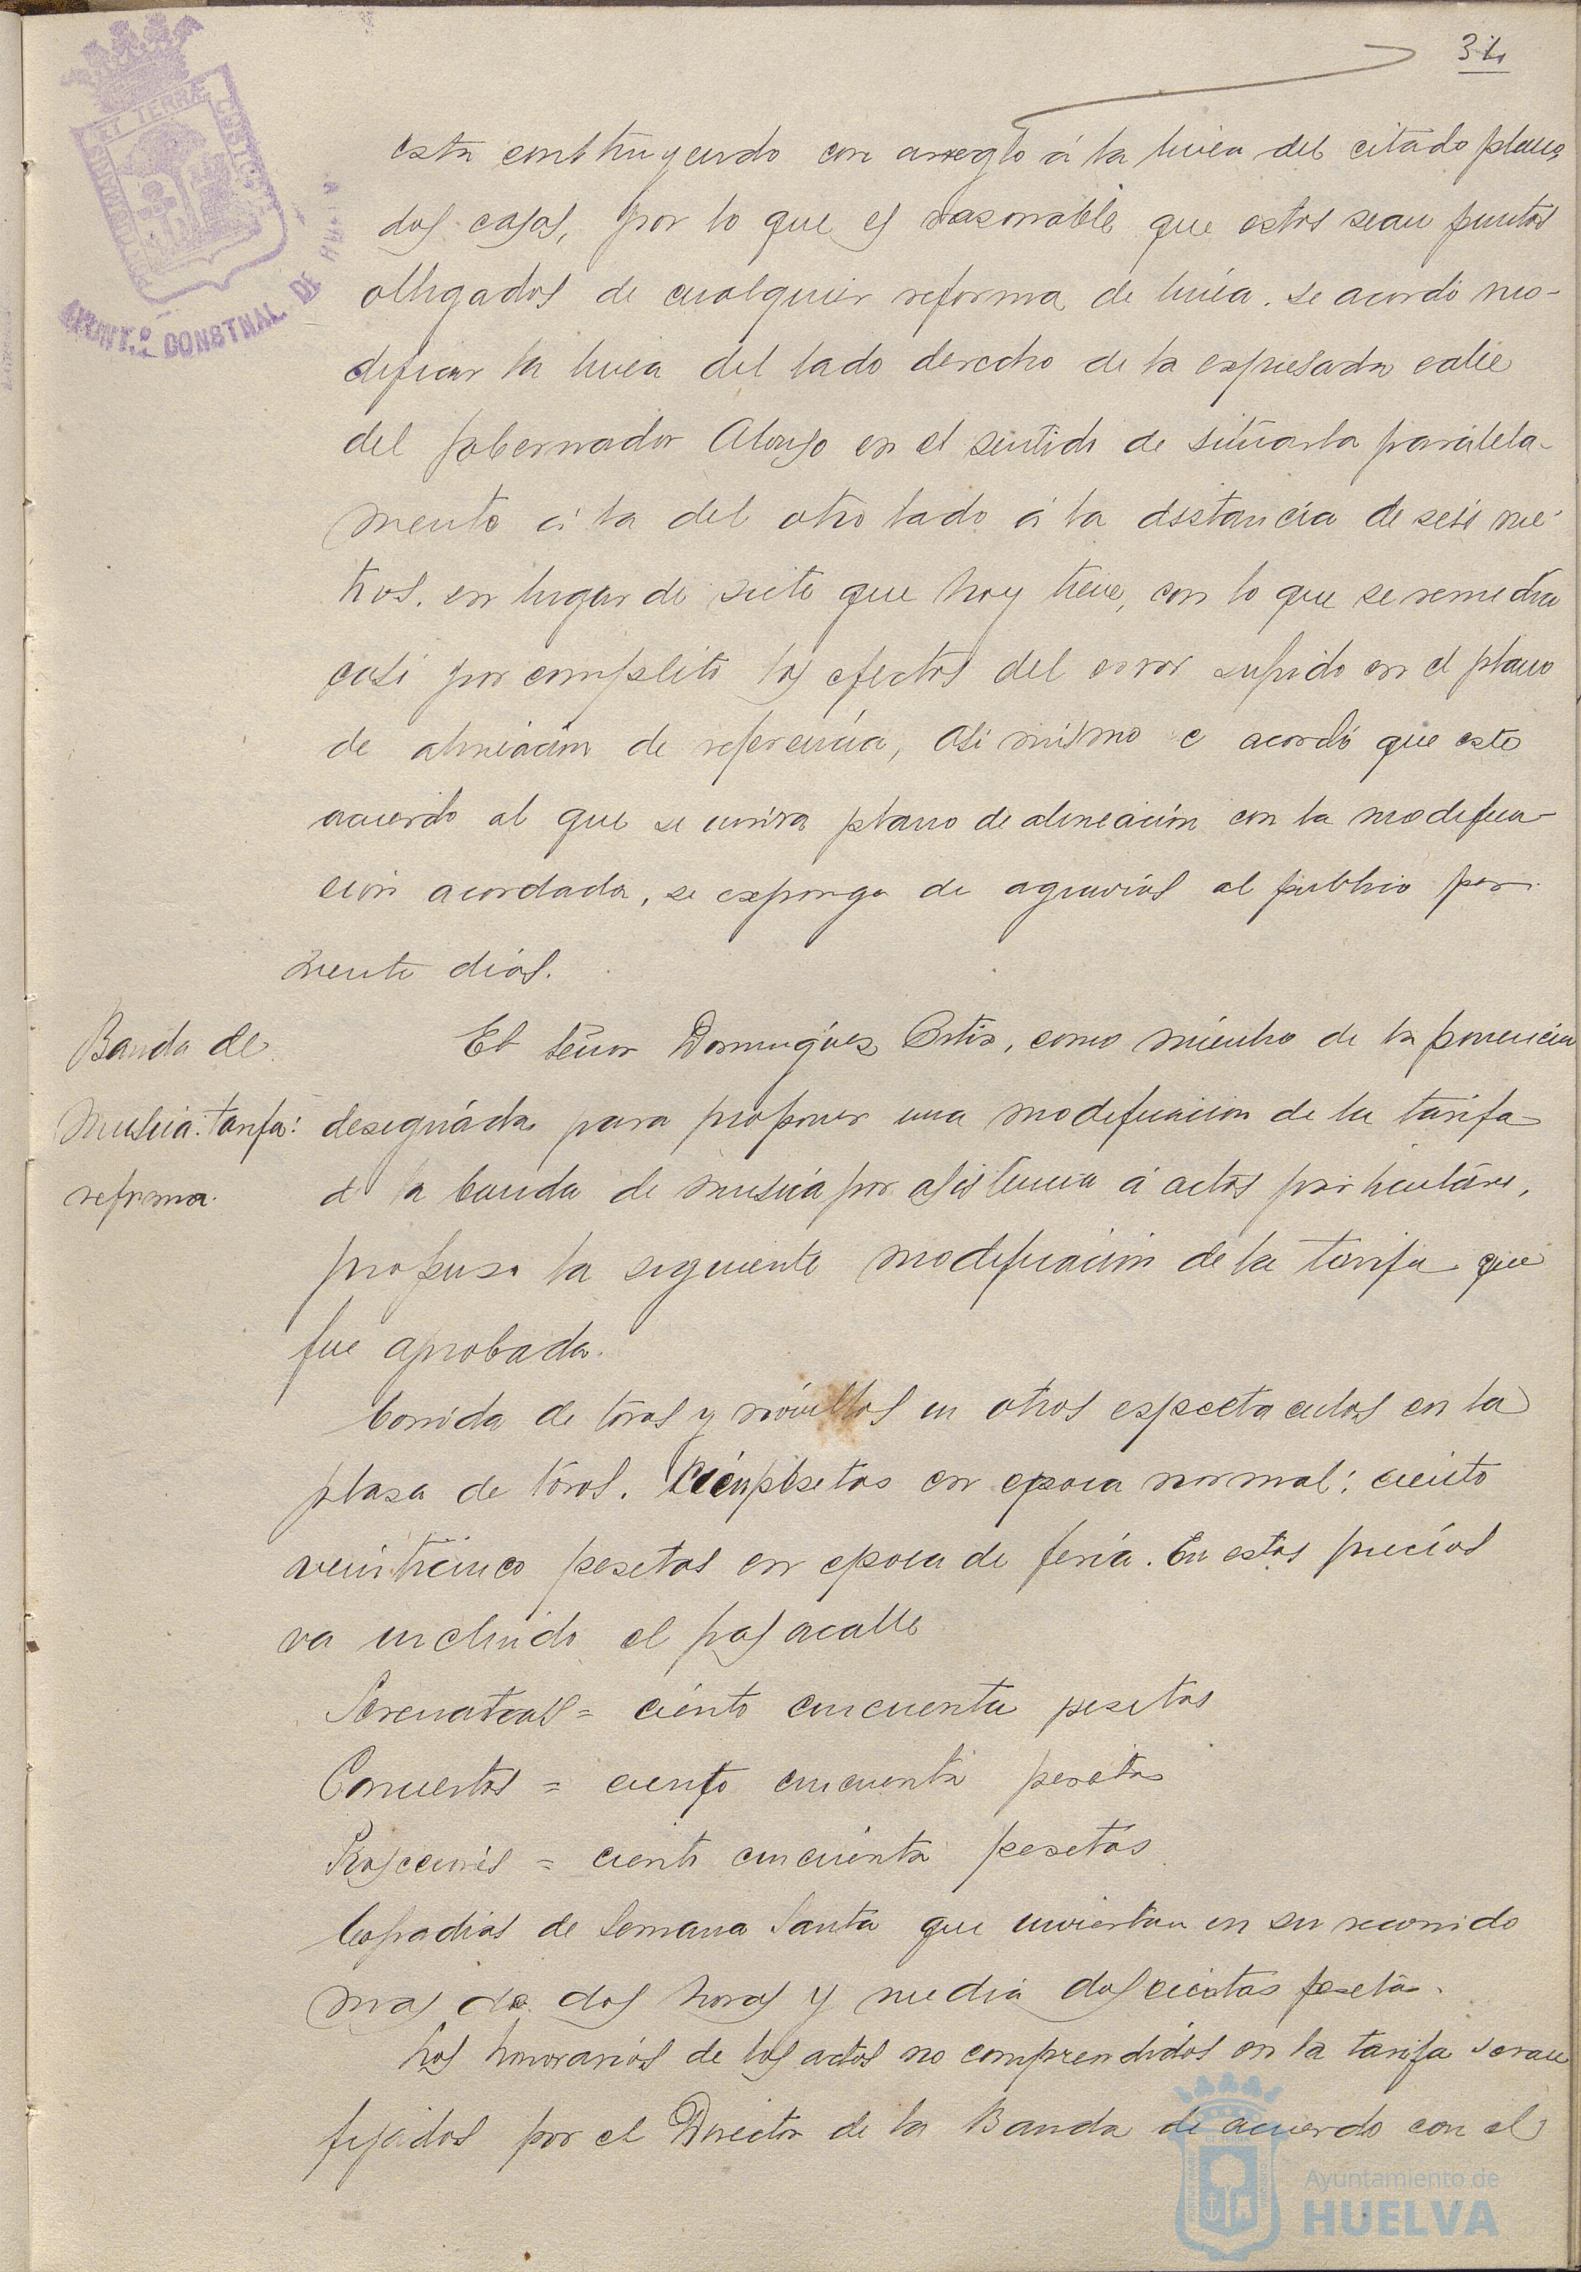 34
esta construyendo con arreglo á la linea del citado plano
dos casas, por lo que es rasonable que estos sean puntos
obligados de cualquier reforma de linéa. se acordó mo-
dificar la linea del lado derecho de la expresada calle
del gobernador Alonso en el sentido de situarla paralela-
mente á la del otro lado á la distancia de seis me-
tros. en lugar de siete que hoy tiene, con lo que se remedia
casi por completo los efectos del error sufrido en el plano
de alineación de referencia, asi mismo se acordó que este
acuerdo al que se unirá plano de alineación con la modifica-
ción acordada, se exponga de agravios al publico por
veinte dias.
Banda de
musica. tarifa:
reforma.
El señor Dominguez Ortiz, como miembro de la ponencia
designada para proponer una modificacion de la tarifa
de la banda de musica por asistencia á actos particulares,
propuso la siguiente modificación de la tarifa que
fue aprobada.
Corrida de toros y novillos u otros espectaculos en la
plasa de toros. Cien pesetas en epoca normal: ciento
veinticinco pesetas en epoca de feria. En estos precios
va incluido el pasacalle
Serenatas = ciento cincuenta pesetas
Conciertos = ciento cincuenta pesetas
Procesiones = ciento cincuenta pesetas
Cofradias de Semana Santa que inviertan en su recorrido
mas de dos horas y media doscientas pesetas.
Los honorarios de los actos no comprendidos en la tarifa seran
fijados por el Director de la Banda de acuerdo con el
AYUNT.º CONSTNAL DE HUELVA
Ayuntamiento de
HUELVA